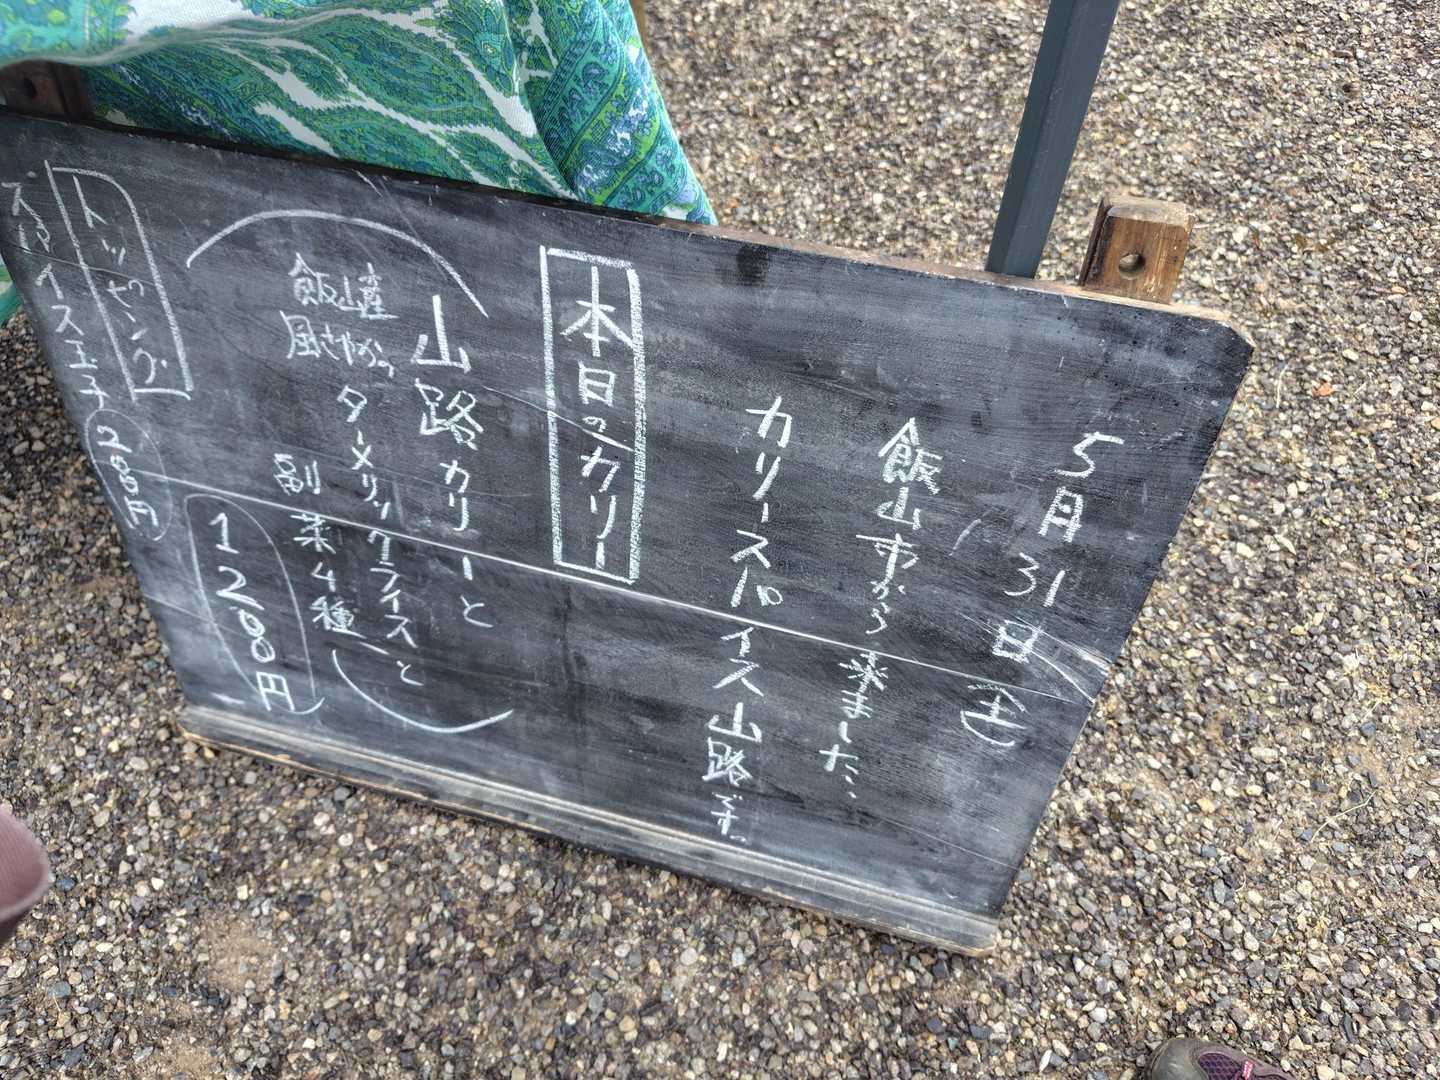 5月31日(金)
飯山市から来ました…
カリースパイス山路です。
本日のカリー
山路カリーと
ターメリックライスと
飯山産
風さやか
副菜4種
1200円
トッピング
スパイス玉子 200円